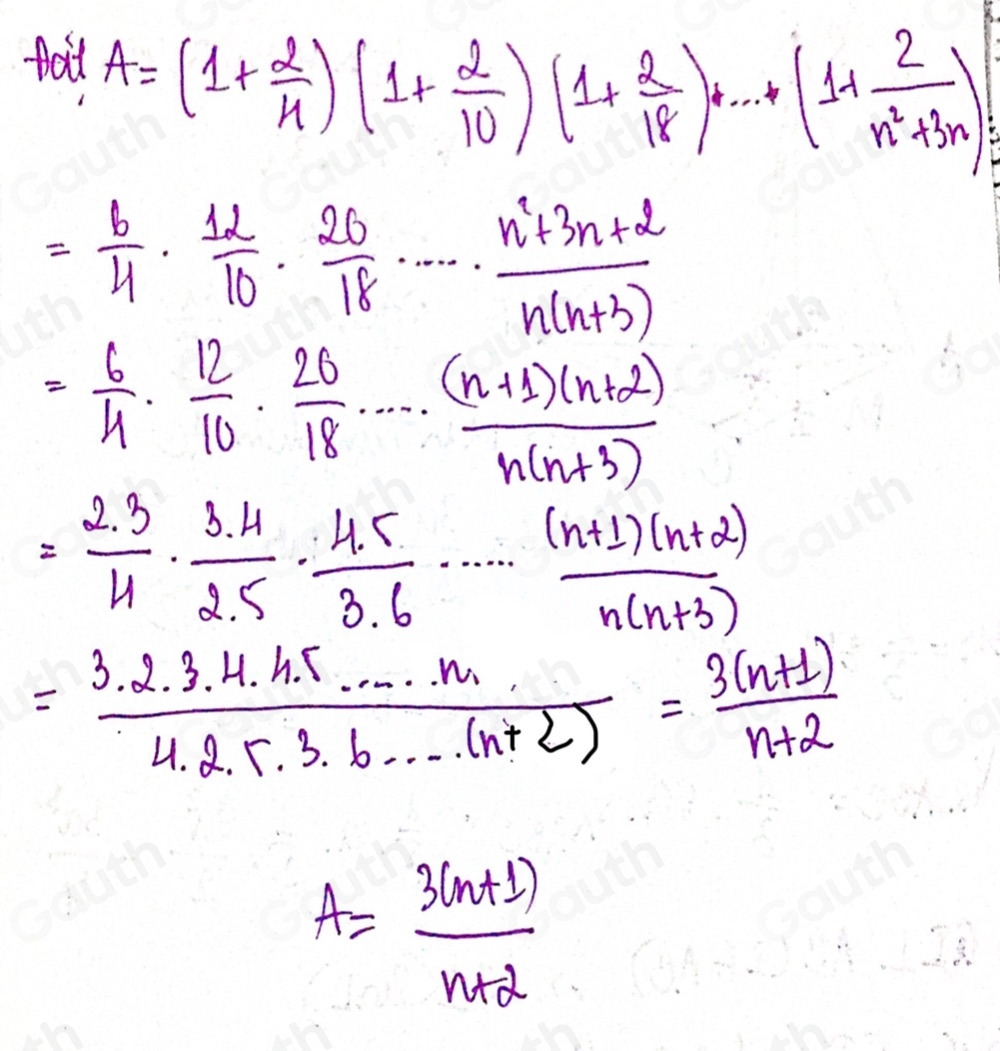 Đặt A = (1 + 2/4) (1 + 2/10) (1 + 2/18) + .... + (1 + 2/n²+3n)
= 6/4 . 12/10 . 20/18 ..... . n²+3n+2/n(n+3)
= 6/4 . 12/10 . 20/18 ..... (n+1)(n+2)/n(n+3)
= 2.3/4 . 3.4/2.5 . 4.5/3.6 ...... (n+1)(n+2)/n(n+3)
= 3.2.3.4.4.5......n/4.2.5.3.6.....(n+2) = 3(n+1)/n+2
A = 3(n+1)/n+2